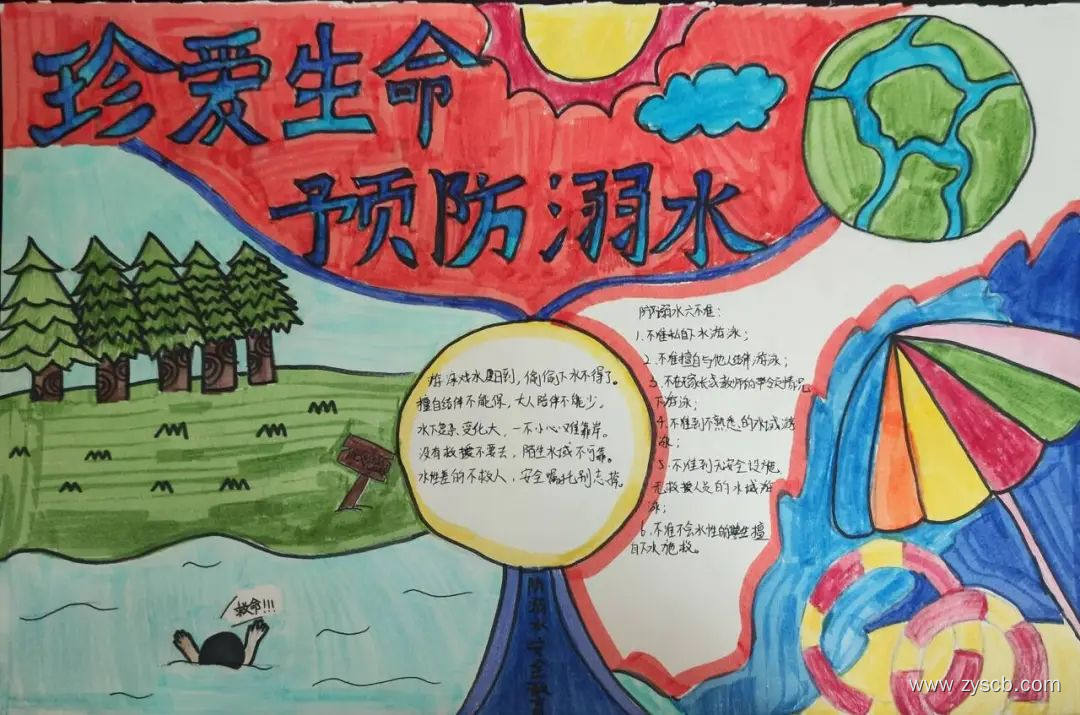 珍爱生命
预防溺水
游泳戏水夏日到，偷偷下水不得了。
擅自结伴不能保，大人陪伴不能少。
水下复杂变化大，一不小心难靠岸。
没有救援不要去，陌生水域不可靠。
水性差的不救人，安全嘱托别忘掉。
防溺水六不准：
1.不准私自下水游泳；
2.不准擅自与他人结伴游泳；
3.不在无家长或教师的带领情况
下游泳；
4.不准到不熟悉的水域游
泳；
5.不准到无安全设施，
无救援人员的水域游
泳；
6.不准不会水性的学生擅
自下水施救。
救命!!!
防溺水安全教育
www.zyscb.com